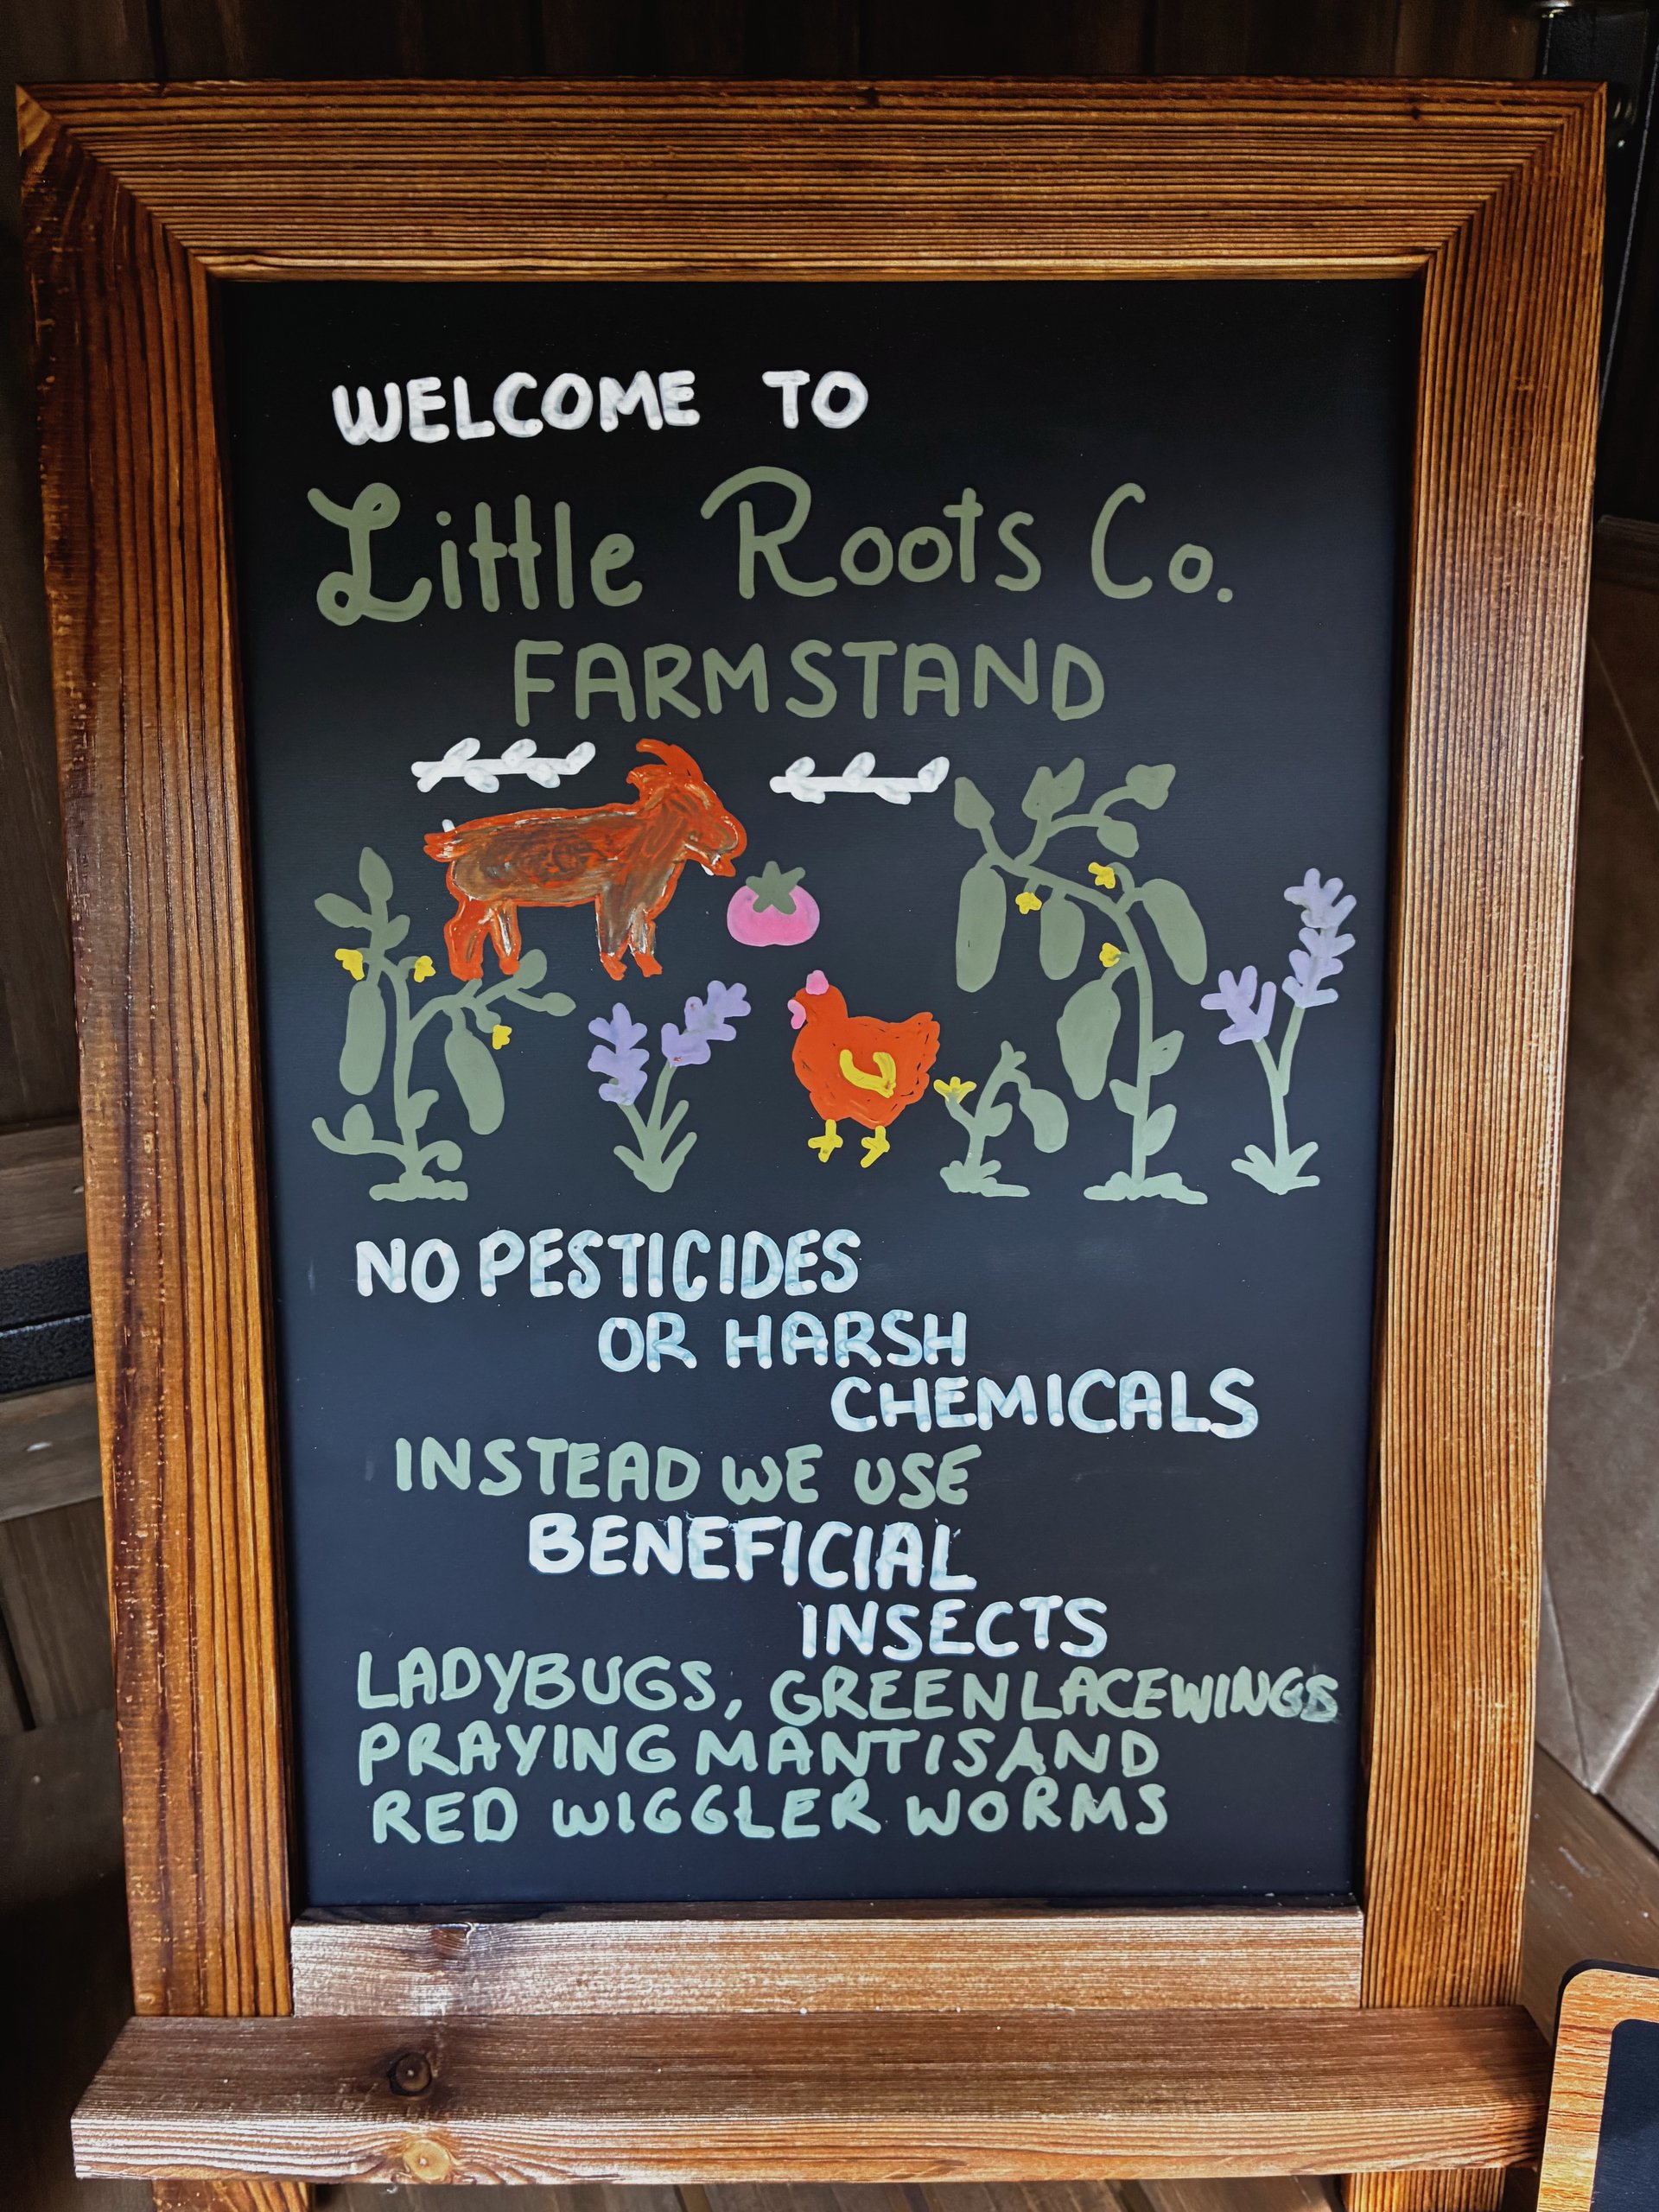 WELCOME TO
Little Roots Co.
FARMSTAND
NO PESTICIDES
OR HARSH
CHEMICALS
INSTEAD WE USE
BENEFICIAL
INSECTS
LADYBUGS, GREEN LACEWINGS
PRAYING MANTIS AND
RED WIGGLER WORMS